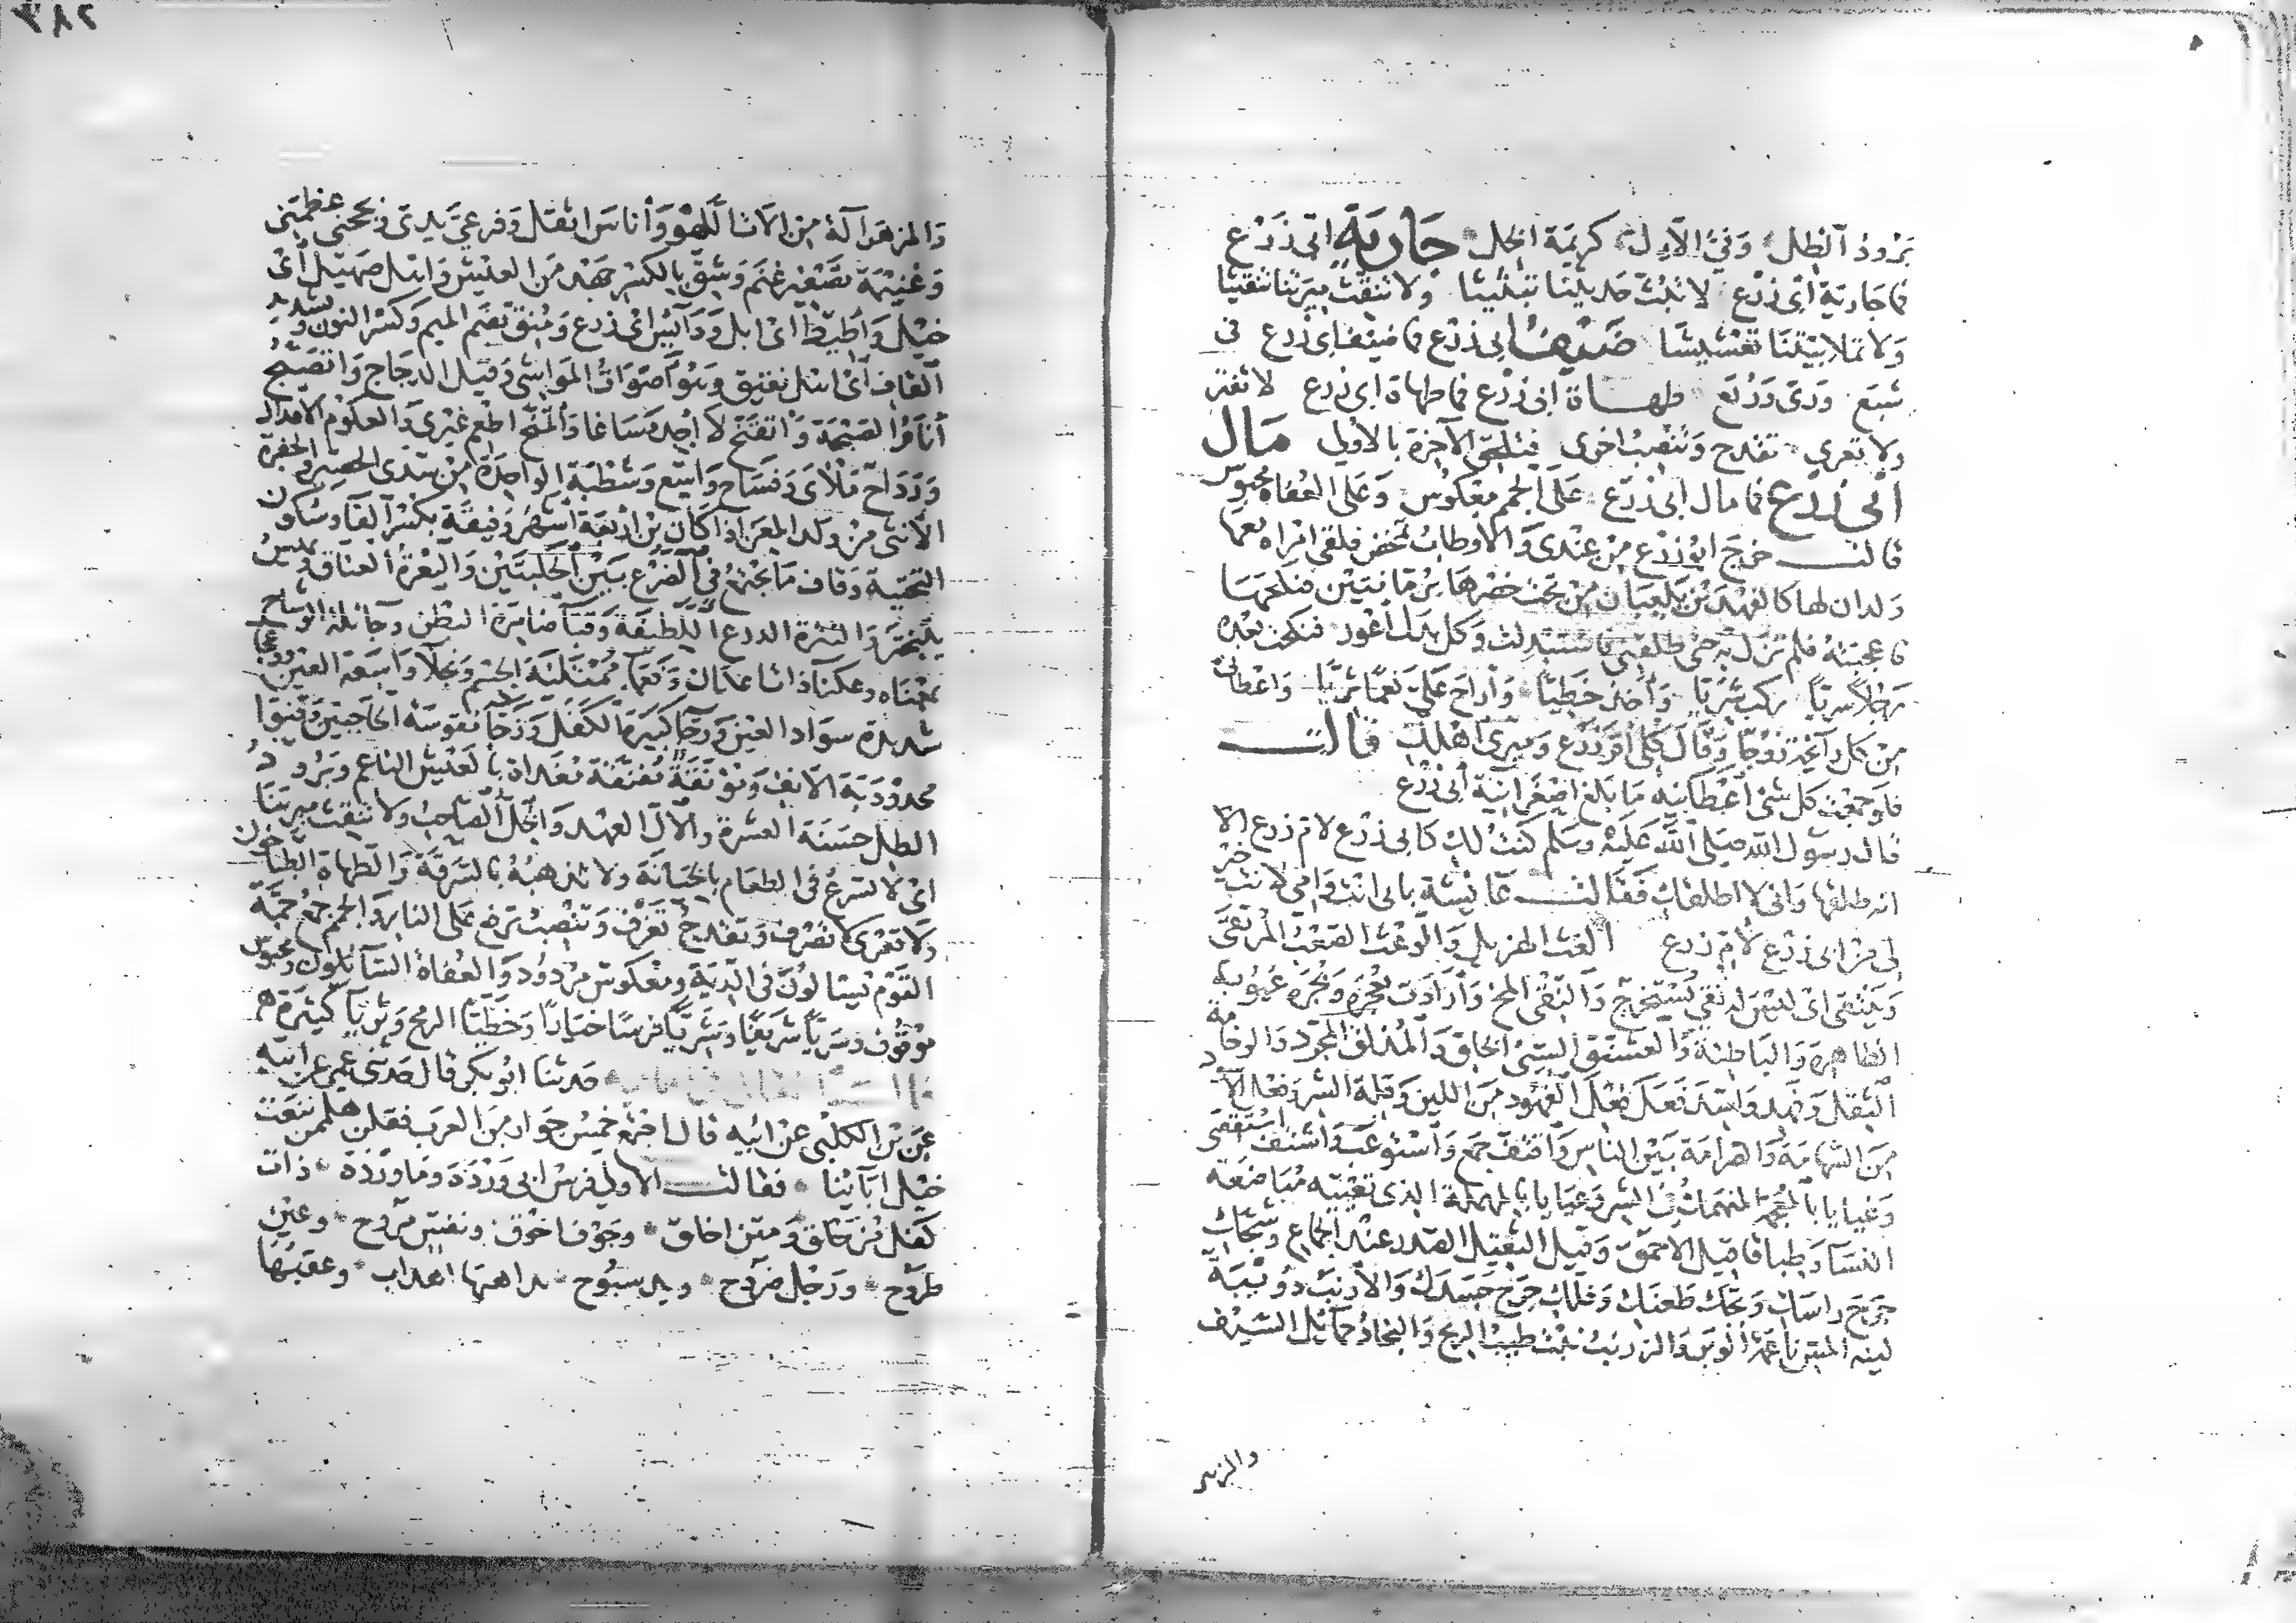 بَرُودُ الظل وَفيُّ الاِل كريمَة الخِل جَاريَة ابى زَرْع
فما جَارية ابى زرْع لا تَبُث حَديثنا تبثيثا ولا تنقث ميرَتنا تنقيثا
وَلا تملا بيْتنَا تعْشيشا ضيفُ ابى زرْع فما ضيف ابى زرع فى
شبَع وَرىّ وَرَتع طهاة ابى زرْع فما طهاة ابى زرع لا تفتر
ولا تعرى تقدح وَتنْصِبُ اخرى فتلحَق الآخرة بالاولى مَال
ابى زرْع فما مال ابى زرع عَلى الجمم معْكوس وَعَلى العُفاة محبوس
قالت خرَج ابو زرْع مِنْ عندى وَالاوطاب تمخض فلقى امْراة معها
وَلدان لها كالفهديْن يلعبَان مِنْ تحت خصْرهَا برُمّانتيْن فنكحَهَا
فاعجبتهُ فلم تزل به حتى طلقنى فاستبْدلت وَكل بدل اعْور فنكحت بعْده
رجُلا سَريّا ركب شَريّا وَاخذ خَطيّا وَاراحَ عَلىّ نعَما ثريّا وَاعْطانى
مِن كل رائحة زوْجا وَقال كلى ام زرْع وَميرى اهْلك قالت
فلوْ جمعْت كل شئ اعْطانيه مَا بَلغ اصْغر آنية ابى زرْع
قال رسُول الله صَلى الله عَليْه وسَلم كنتُ لكِ كابى زرْع لام زرع الا
انه طلقها وَانى لا اطلقك فقَالت عَائِشة بابى انت وَامى لانت خير
لى مِنْ ابى زرْع لام زرع الغث الهزيل وَالوَعْث الصَّعْبُ المُرتقى
وَيُنتقى اى ليْسَ له نِقى يُسْتخرج وَالنقى المخ وَارَادت بعُجَره وَبُجَره عُيُوبه
الظاهرة وَالبَاطنة وَالعشنق السَّيئ الخلق وَالمُذلق المحَدّد وَالوخامة
الثقل وَفهد وَاسَد فَعَل فعْل الفهُود مِنَ اللين وَقلة الشر وَفعْل الآسَاد
مِنَ الشهَامَة وَالصرامَة بَيْنَ الناس وَاقتف جمع وَاستوعب وَاشتف استقصَى
وَغيايا بالمُعْجمة المنهمِك فى الشر وَعَيايا بالمهملة الذى تعْييه مُبَاضعَة
النسَا وَطباقا قيل الاحمق وَقيل الثقيل الصدر عند الجمَاع وَشجّك
جرَحَ راسَك وَبجّك طعَنك وَفلّك جرَح جَسَدك وَالارنب دوَيْبة
لينة المسّ ناعمة الوبَر وَالزرنبُ نَبْت طيبُ الريح وَالنجادُ حمَائل السَّيْف
والمزهر
٣٨٢
وَالمزهَر آلة مِن آلات اللهْو وَأناسَ اثقل وَفرعىَّ يدىّ وَبجحنى عظمَنى
وَغنيْمَة تصْغير غنم وَشق بالكسْر جَهْد مِن العيْش وَاهل صَهيْل أىْ
خيْل وَأطيْط اى ابل وَدائس اى زرع وَمُنق بضَم الميم وَكسْر النون وتشديد
القاف اىْ اهل نقيق وَهُوَ أصوَات المَوَاشى وَقيل الدجَاج وَاتصبّحُ
أنام الصبْحة وَاتقنح لا اجد مَسَاغا وَاتمنح اطعم غيرى وَالعكوْم الاعدال
وَرَداح مَلاى وَفسَاح وَاسع وَشطبة الواحِدة مِنْ سَدى الحصير وَالجفرة
الانثى مِنْ وَلد المعز اذا كان بْن ارْبعة اشهُر وَفيقة بكسْر الفا وَسُكون
التحتية وَقاف مَا يجْتمعُ فى الضرْع بَيْن الحَلبتَيْن وَاليعْرة العناق وَيميسُ
يتبختر وَالنثرة الدرع اللطيْفة وَقبّا ضَامرة البَطن وَجائلة الوشاح
بمعْناه وَعكنا ذات عكن وَفعما ممْتَلئة الجسْم وَنجلا وَاسعَة العيْن وَدعجا
شديدة سوَاد العيْن وَرَجّا كبيرَة الكفل وَزجّا مقوسَة الحاجبَيْن وَقنوا
محدوْدَبة الانف وَمُؤنقة مُفنّقة مغذاة بالعَيْش الناعم وَبَرُودُ
الظل حسَنة العشرة وَالال العهْد وَالخل الصَّاحبُ وَلا تنقث ميرتنَا
اىْ لا تسْرع فى الطعَام بالخيَانة وَلا تذهبُه بالسَّرقة وَالطهاة الطبّاخون
وَلا تعْرى لا تصْرف وَتقدح تغْرف وَتنْصِبُ ترفع عَلى النار وَالجمم جمْعُ جمَّة
القوْم يسْالوْن فى الديَة وَمَعْكوس مرْدُود وَالعُفاة السَّائلون وَمحبوس
موْقوْف وَسَريّا شريْفا وَشَريّا فرسًا خيَارًا وَخطيّا الرمح وَثريّا كثيْرة
حَدثنا ابُو بكر قال حَدثنى عمى عن ابيه
عَنْ ابْن الكلْبى عنْ ابيْه قال اجتمَع خمسُ جوَار مِنَ العرَب فقلن هلممن ننعَت
خيْل ابَائنا فقالت الاولى فرسُ ابى وَرْدَة وَمَا وَرْدَة ذات
كفل مُزَحْلق وَمتن اخلق وجَوْف اخْوَق ونفس مَرُوح وعَيْن
طرُوح وَرَجْل ضرُوح وَيد سبُوح بداهتها اهداب وعقبُهَا